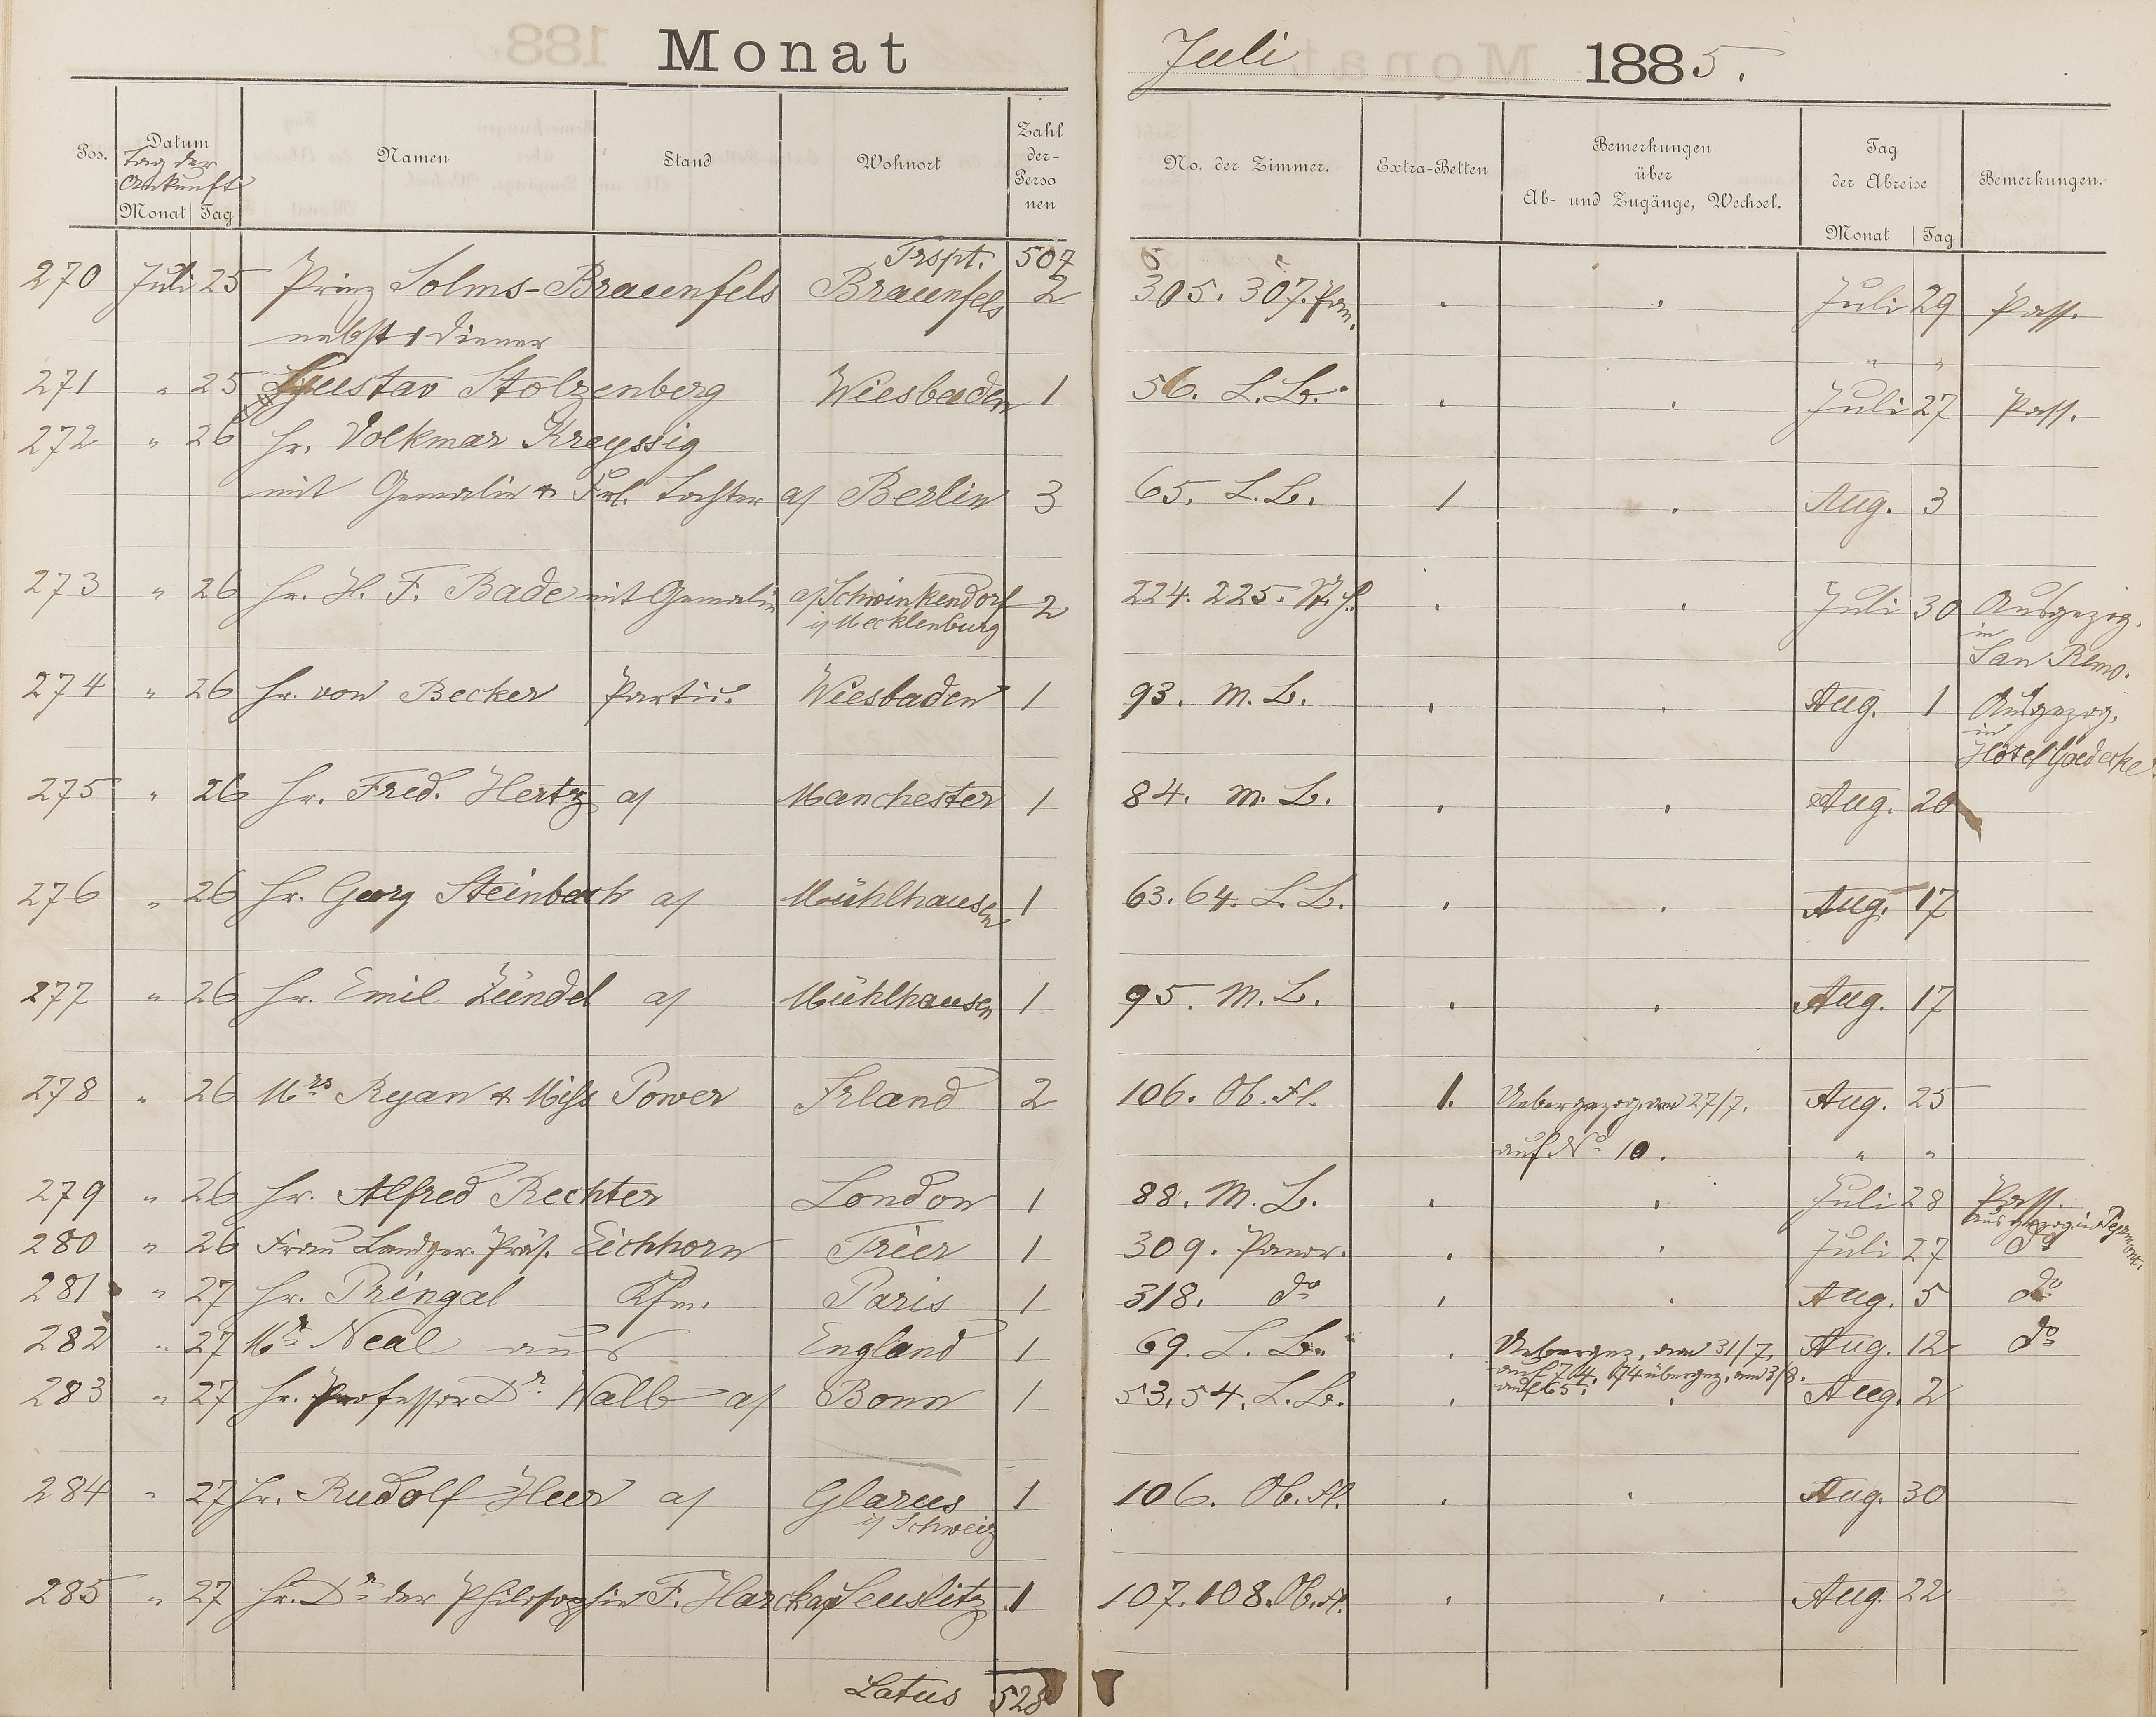 Monat Juli 1885.
Pos. Datum Namen Stand Wohnort Zahl der- Perso nen No. der Zimmer. Extra-Betten Bemerkungen über Ab- und Zugänge, Wechsel. Tag der Abreise Bemerkungen.
Tag der Ankunft
Monat Tag Monat Tag
Trspt. 507
270 Juli 25 Prinz Solms-Braunfels Braunfels 2 305. 307. Pan. Juli 29 Pass.
nebst 1 Diener " "
271 " 25 Gustav Stolzenberg Wiesbaden 1 56. L. B. Juli 27 Pass.
272 " 26 Hr. Volkmar Kreyssig
mit Gemalin & Frl. Tochter a/ Berlin 3 65. L. B. 1 Aug. 3
273 " 26 Hr. H. F. Bade mit Gemalin a/ Schwinkendorf 2 224. 225. Juli 30 Ausgezog.
i/ Mecklenburg in San Remo.
274 " 26 Hr. von Becker Partic. Wiesbaden 1 93. M. B. Aug. 1 Ausgezog.
in Hôtel Goedecke
275 " 26 Hr. Fred. Hertz a/ Manchester 1 84. M. B. Aug. 20
276 " 26 Hr. Georg Steinbach a/ Mühlhausen 1 63. 64. L. B. Aug. 17
277 " 26 Hr. Emil Zündel a/ Mühlhausen 1 95. M. B. Aug. 17
278 " 26 Mrs Ryan & Miss Power Irland 2 106. Ob. Fl. 1. Uebergezog. am 27/7. Aug. 25
auf No 10. " "
279 " 26 Hr. Alfred Rechter London 1 88. M. B. Juli 28 Pass.
ausgezog. in
280 " 26 Frau Landger. Präs. Eichhorn Trier 1 309. Panor. Juli 27 do
281 " 27 Hr. Pringal Kfm. Paris 1 318. do Aug. 5 do
282 " 27 Mr Neal aus England 1 69. L. B. Uebergez. am 31/7. Aug. 12 do
auf 74. 74 übergez. am 3/8.
auf 65.
283 " 27 Hr. Professor Dr Walb a/ Bonn 1 53. 54. L. B. Aug. 2
284 " 27 Hr. Rudolf Heer a/ Glarus 1 106. Ob. Fl. Aug. 30
i/ Schweiz
285 " 27 Hr. Dr der Philosophie F. Harck a/ Seuslitz 1 107. 108. Ob. Fl. Aug. 22
Latus 528